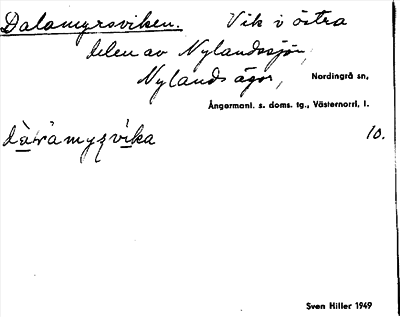 Dalamyrsviken. Vik i östra
delen av Nylandssjön,
Nylands ägor, Nordingrå sn,
Ångermanl. s. doms. tg., Västernorrl. l.
10.
Sven Hiller 1949